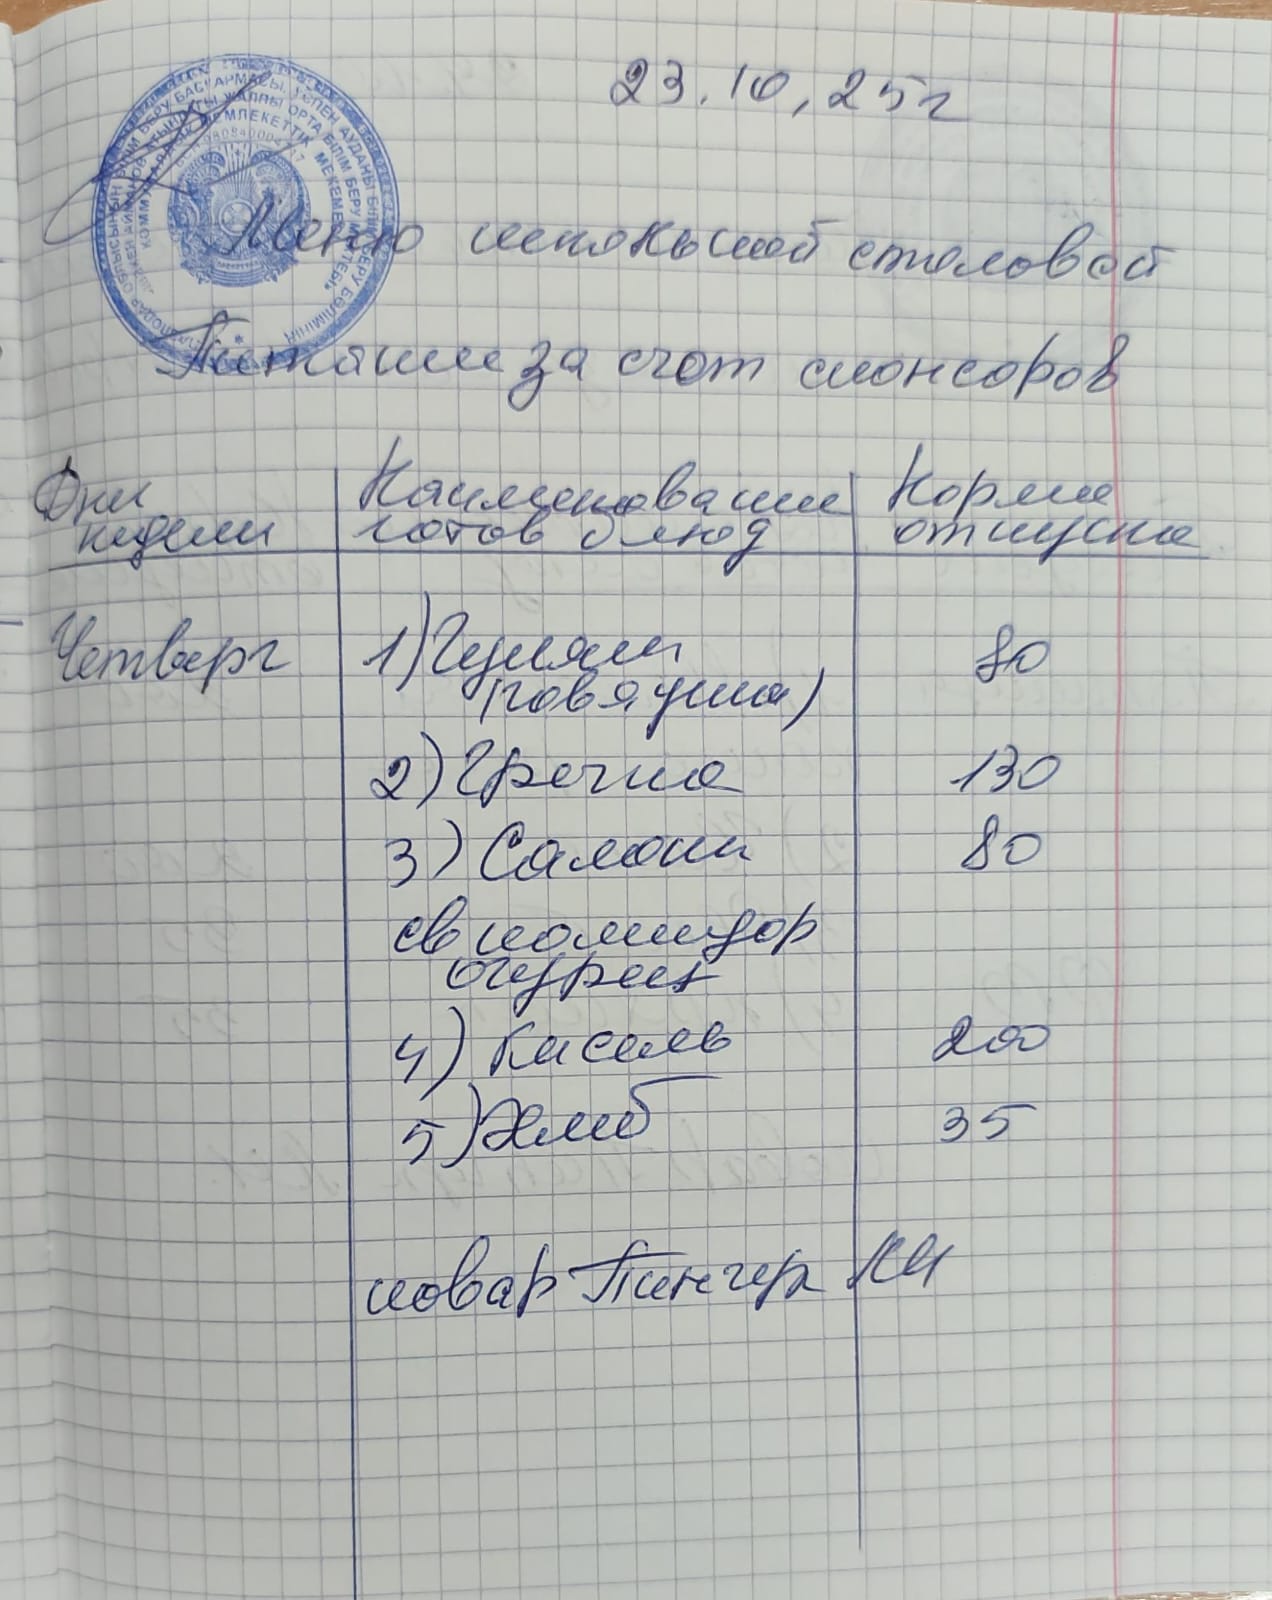 23.10,25г
Меню школьной столовой
Питание за счет спонсоров
Дни недели
Наименование готов блюд
Норма отпуска
Четверг
1) Гуляш (говядина) 80
2) Гречка 130
3) Салат 80
св помидор
огурец
4) Кисель 200
5) Хлеб 35
повар Тингер КИ